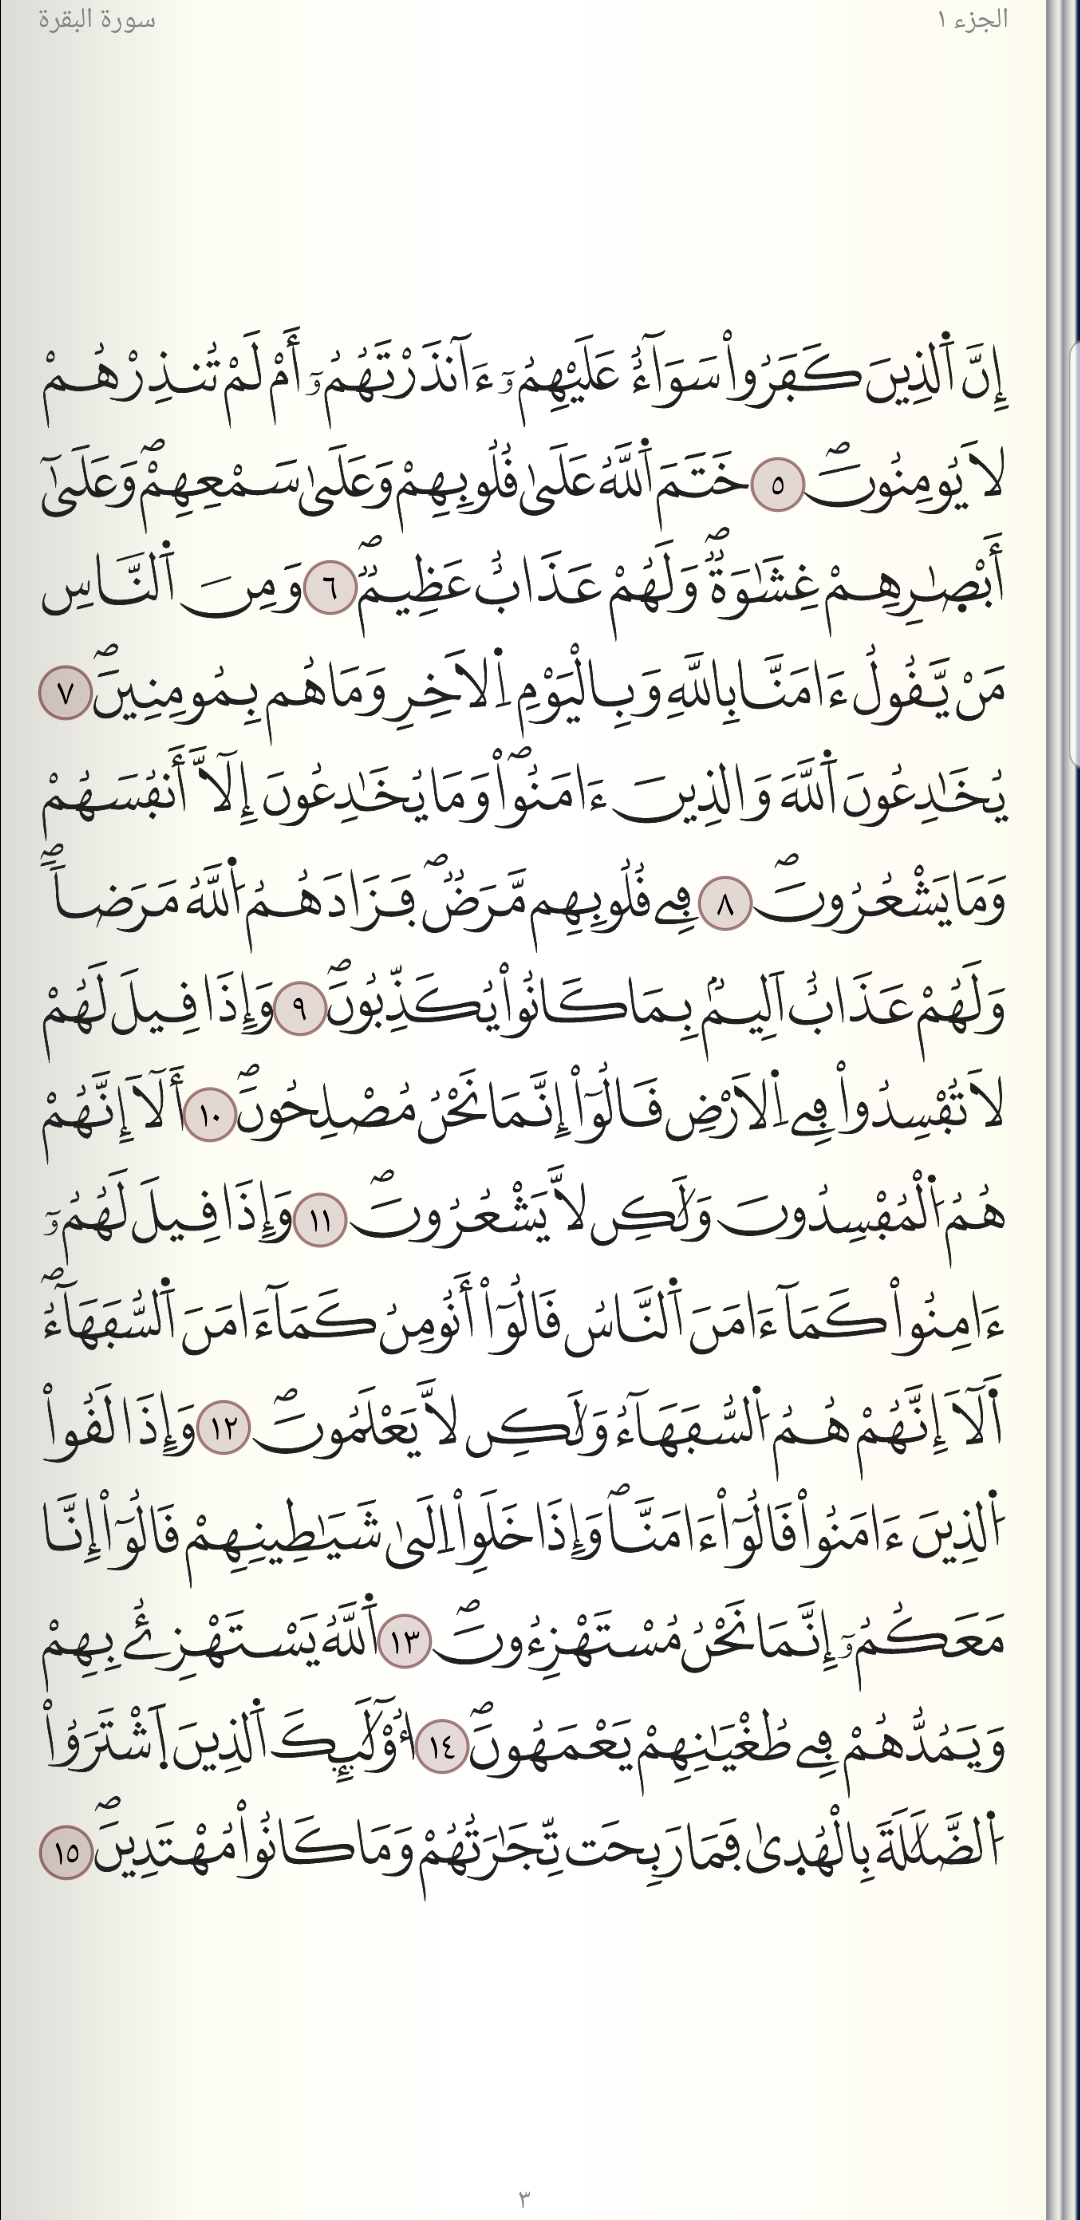 الجزء ١
سورة البقرة
إِنَّ اَ۬لذِينَ كَفَرُواْ سَوَآءٌ عَلَيْهِمُۥٓ ءَآنذَرْتَهُمُۥٓ أَمْ لَمْ تُنذِرْهُمْ
لَا يُومِنُونَۖ ٥ خَتَمَ اَ۬للَّهُ عَلَىٰ قُلُوبِهِمْ وَعَلَىٰ سَمْعِهِمْۖ وَعَلَىٰٓ
أَبْصٰ۪رِهِمْ غِشَٰوَةٌۖ وَلَهُمْ عَذَابٌ عَظِيمٌۖ ٦ وَمِنَ اَ۬لنَّاسِ
مَنْ يَّقُولُ ءَامَنَّا بِاللَّهِ وَبِالْيَوْمِ اِ۬لَاخِرِ وَمَا هُم بِمُومِنِينَۖ ٧
يُخَٰدِعُونَ اَ۬للَّهَ وَالذِينَ ءَامَنُواْۖ وَمَا يُخَٰدِعُونَ إِلَّآ أَنفُسَهُمْ
وَمَا يَشْعُرُونَۖ ٨ فِے قُلُوبِهِم مَّرَضٌۖ فَزَادَهُمُ اُ۬للَّهُ مَرَضاٗۖ
وَلَهُمْ عَذَابٌ اَلِيمٌۢ بِمَا كَانُواْ يُكَذِّبُونَۖ ٩ وَإِذَا قِيلَ لَهُمْ
لَا تُفْسِدُواْ فِے اِ۬لَارْضِ قَالُوٓاْ إِنَّمَا نَحْنُ مُصْلِحُونَۖ ١٠ أَلَآ إِنَّهُمْ
هُمُ اُ۬لْمُفْسِدُونَ وَلَٰكِن لَّا يَشْعُرُونَۖ ١١ وَإِذَا قِيلَ لَهُمُۥٓ
ءَامِنُواْ كَمَآ ءَامَنَ اَ۬لنَّاسُ قَالُوٓاْ أَنُومِنُ كَمَآ ءَامَنَ اَ۬لسُّفَهَآءُۖ
اَ۬لَآ إِنَّهُمْ هُمُ اُ۬لسُّفَهَآءُ وَلَٰكِن لَّا يَعْلَمُونَۖ ١٢ وَإِذَا لَقُواْ
اُ۬لذِينَ ءَامَنُواْ قَالُوٓاْ ءَامَنَّاۖ وَإِذَا خَلَوِاْ اِلَىٰ شَيَٰطِينِهِمْ قَالُوٓاْ إِنَّا
مَعَكُمُۥٓ إِنَّمَا نَحْنُ مُسْتَهْزِءُونَۖ ١٣ اَ۬للَّهُ يَسْتَهْزِئُ بِهِمْ
وَيَمُدُّهُمْ فِے طُغْيَٰنِهِمْ يَعْمَهُونَۖ ١٤ أُوْلَٰٓئِكَ اَ۬لذِينَ اَ۪شْتَرَوُاْ
اُ۬لضَّلَٰلَةَ بِالْهُد۪ىٰ فَمَا رَبِحَت تِّجَٰرَتُهُمْ وَمَا كَانُواْ مُهْتَدِينَۖ ١٥
٣